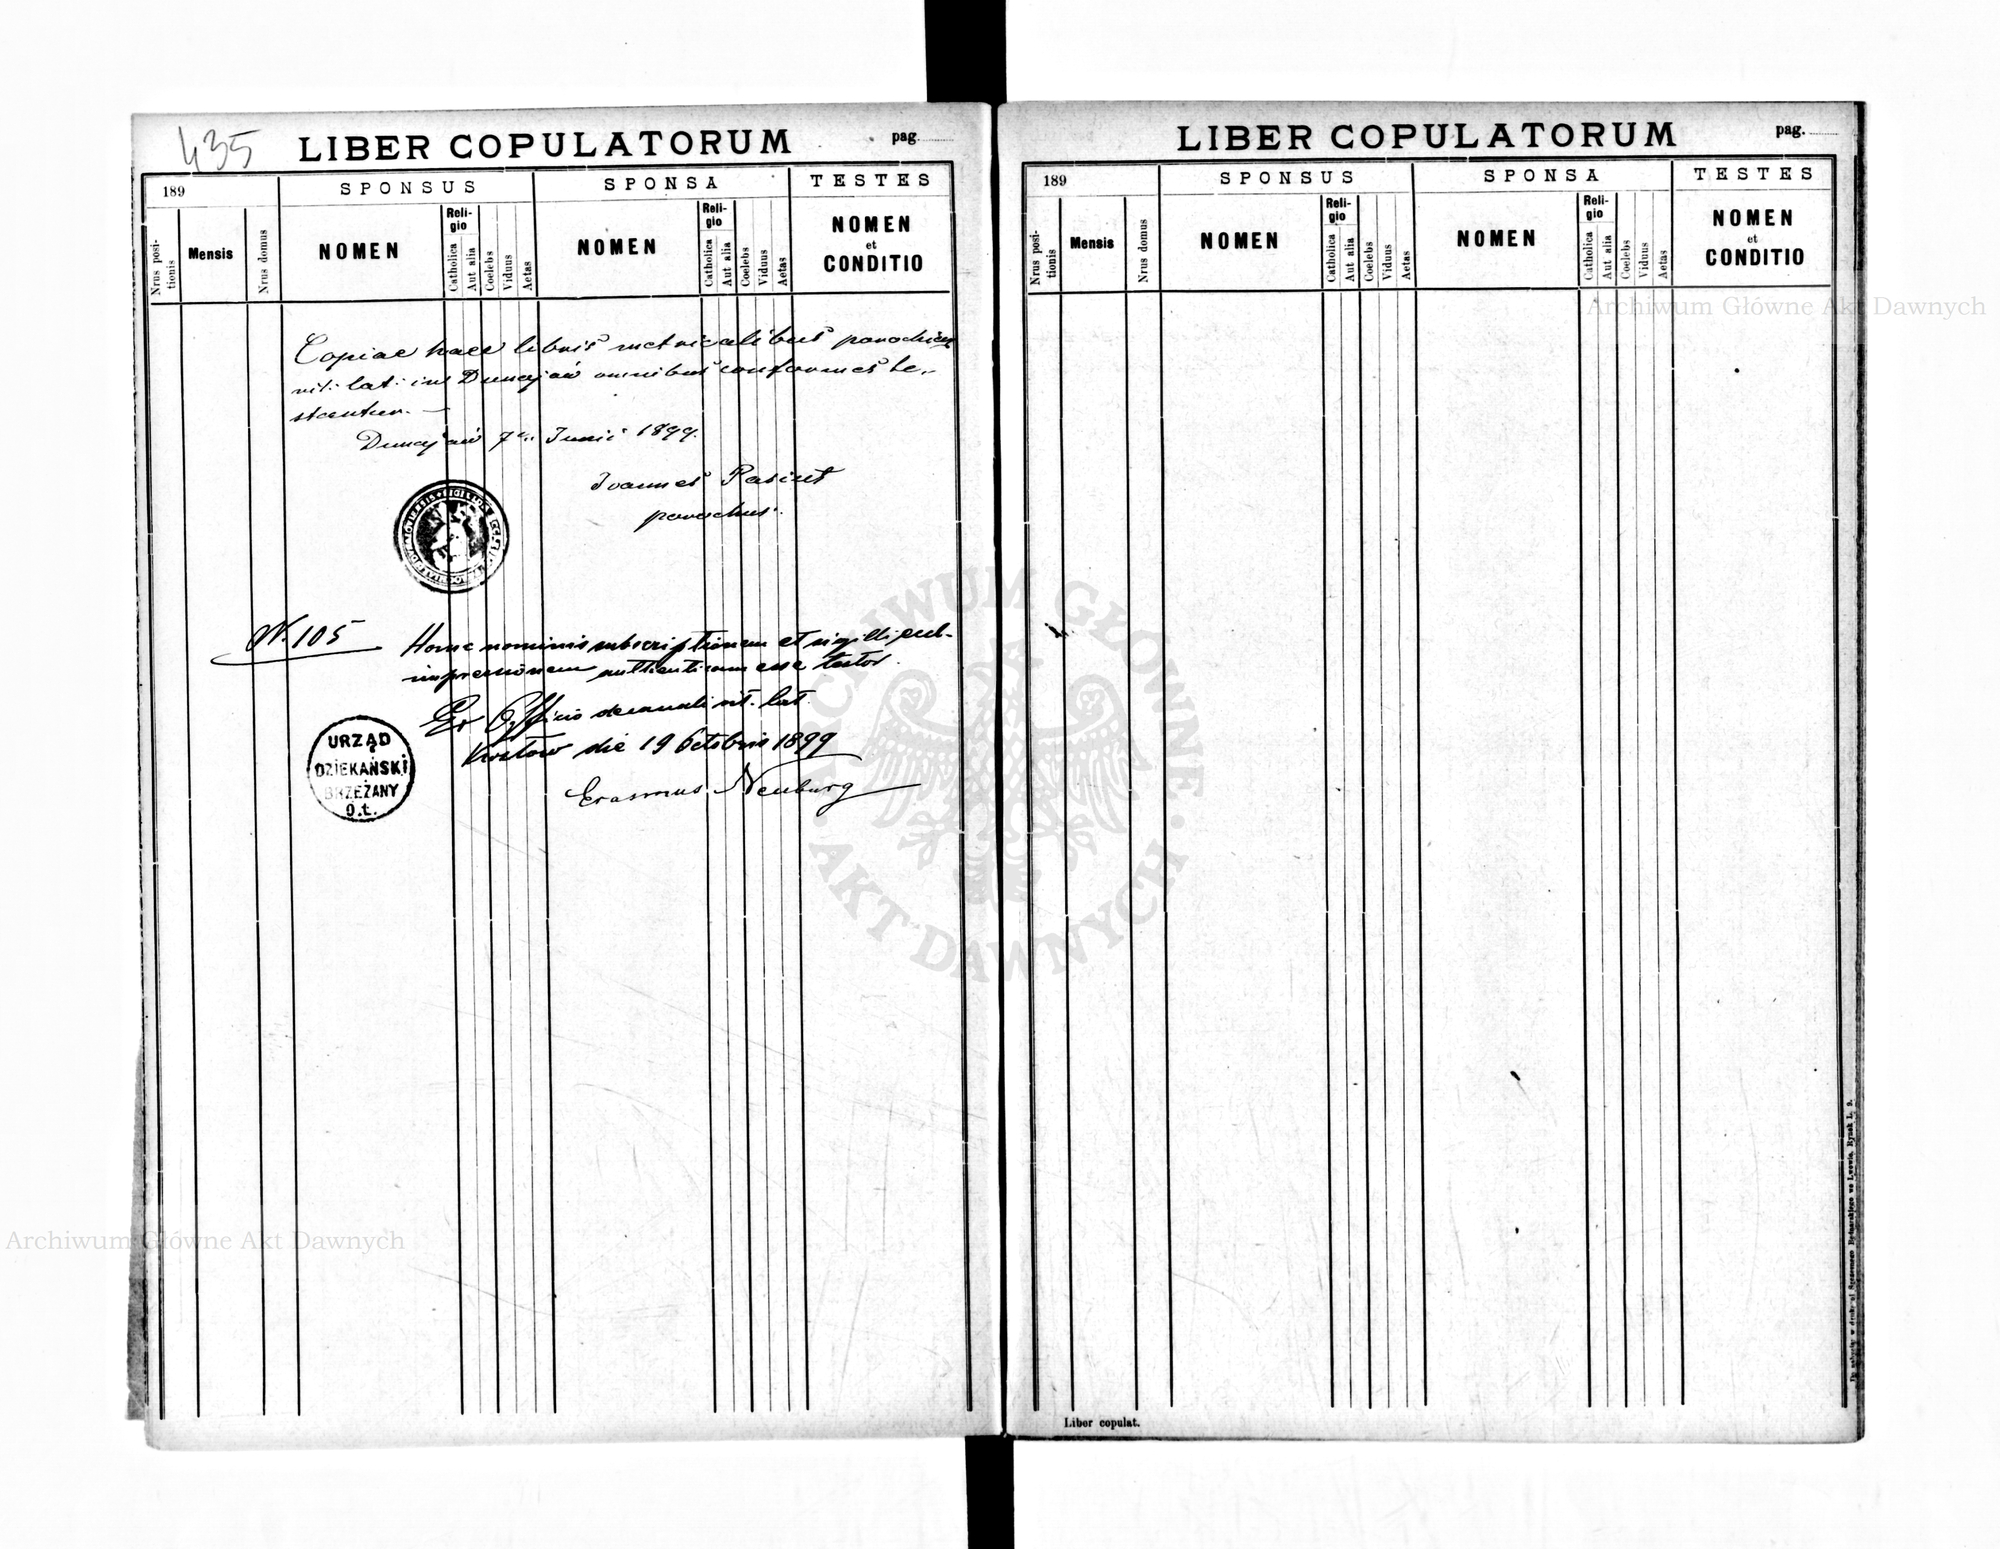 435
LIBER COPULATORUM
pag.
189
SPONSUS
SPONSA
TESTES
Nrus positionis
Mensis
Nrus domus
NOMEN
Religio
Catholica
Aut alia
Coelebs
Viduus
Aetas
NOMEN
Religio
Catholica
Aut alia
Coelebs
Viduus
Aetas
NOMEN
et
CONDITIO
Copiae haec libris metricalibus parochiae
rit: lat: in Dunajów omnibus conformes te-
stantur.
Dunajów 7 Junii 1899.
Joannes Pasiut
parochus.
N. 105
Hanc nominis subscriptionem et sigilli
impressionem authenticam esse testor.
Ex Officio decanali rit. lat.
die 19 Octobris 1899
Erasmus Neuburg
URZĄD
DZIEKAŃSKI
BRZEŻANY
O.Ł.
LIBER COPULATORUM
pag.
189
SPONSUS
SPONSA
TESTES
Nrus positionis
Mensis
Nrus domus
NOMEN
Religio
Catholica
Aut alia
Coelebs
Viduus
Aetas
NOMEN
Religio
Catholica
Aut alia
Coelebs
Viduus
Aetas
NOMEN
et
CONDITIO
Liber copulat.
Archiwum Główne Akt Dawnych
ARCHIWUM GŁÓWNE
AKT DAWNYCH
Archiwum Główne Akt Dawnych